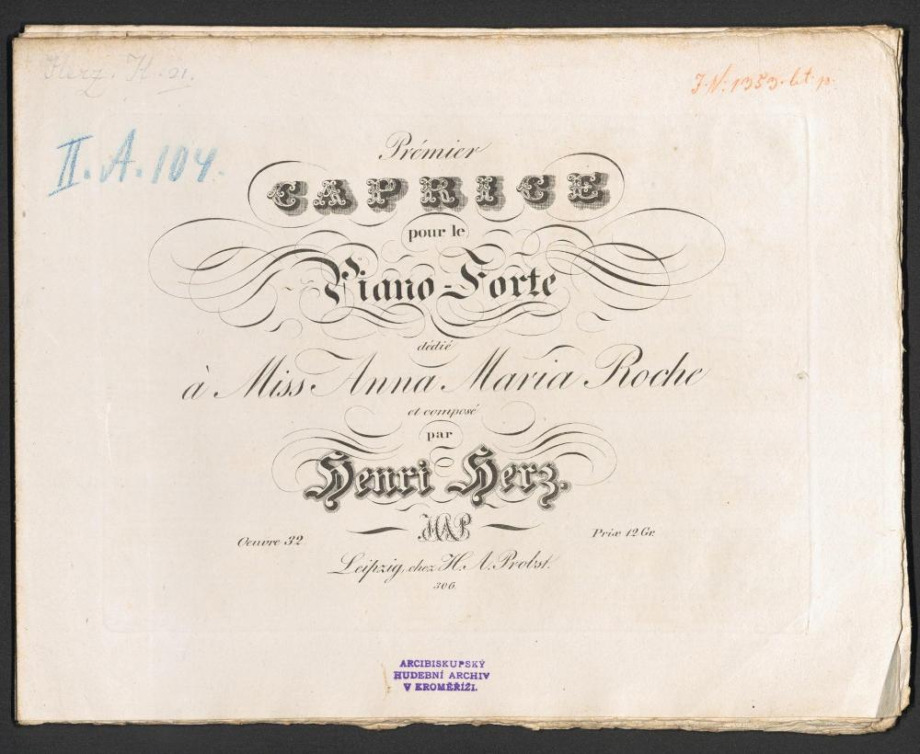 Herz. H. 21.
J.N: 1353. lit. p.
II. A. 104.
Prémier
CAPRICE
pour le
Piano-Forte
dédié
à Miss Anna Maria Roche
et composé
par
Henri Herz.
HAP
Oeuvre 32.
Prix 12 Gr.
Leipzig, chez H. A. Probst.
306.
ARCIBISKUPSKÝ
HUDEBNÍ ARCHIV
V KROMĚŘÍŽI.